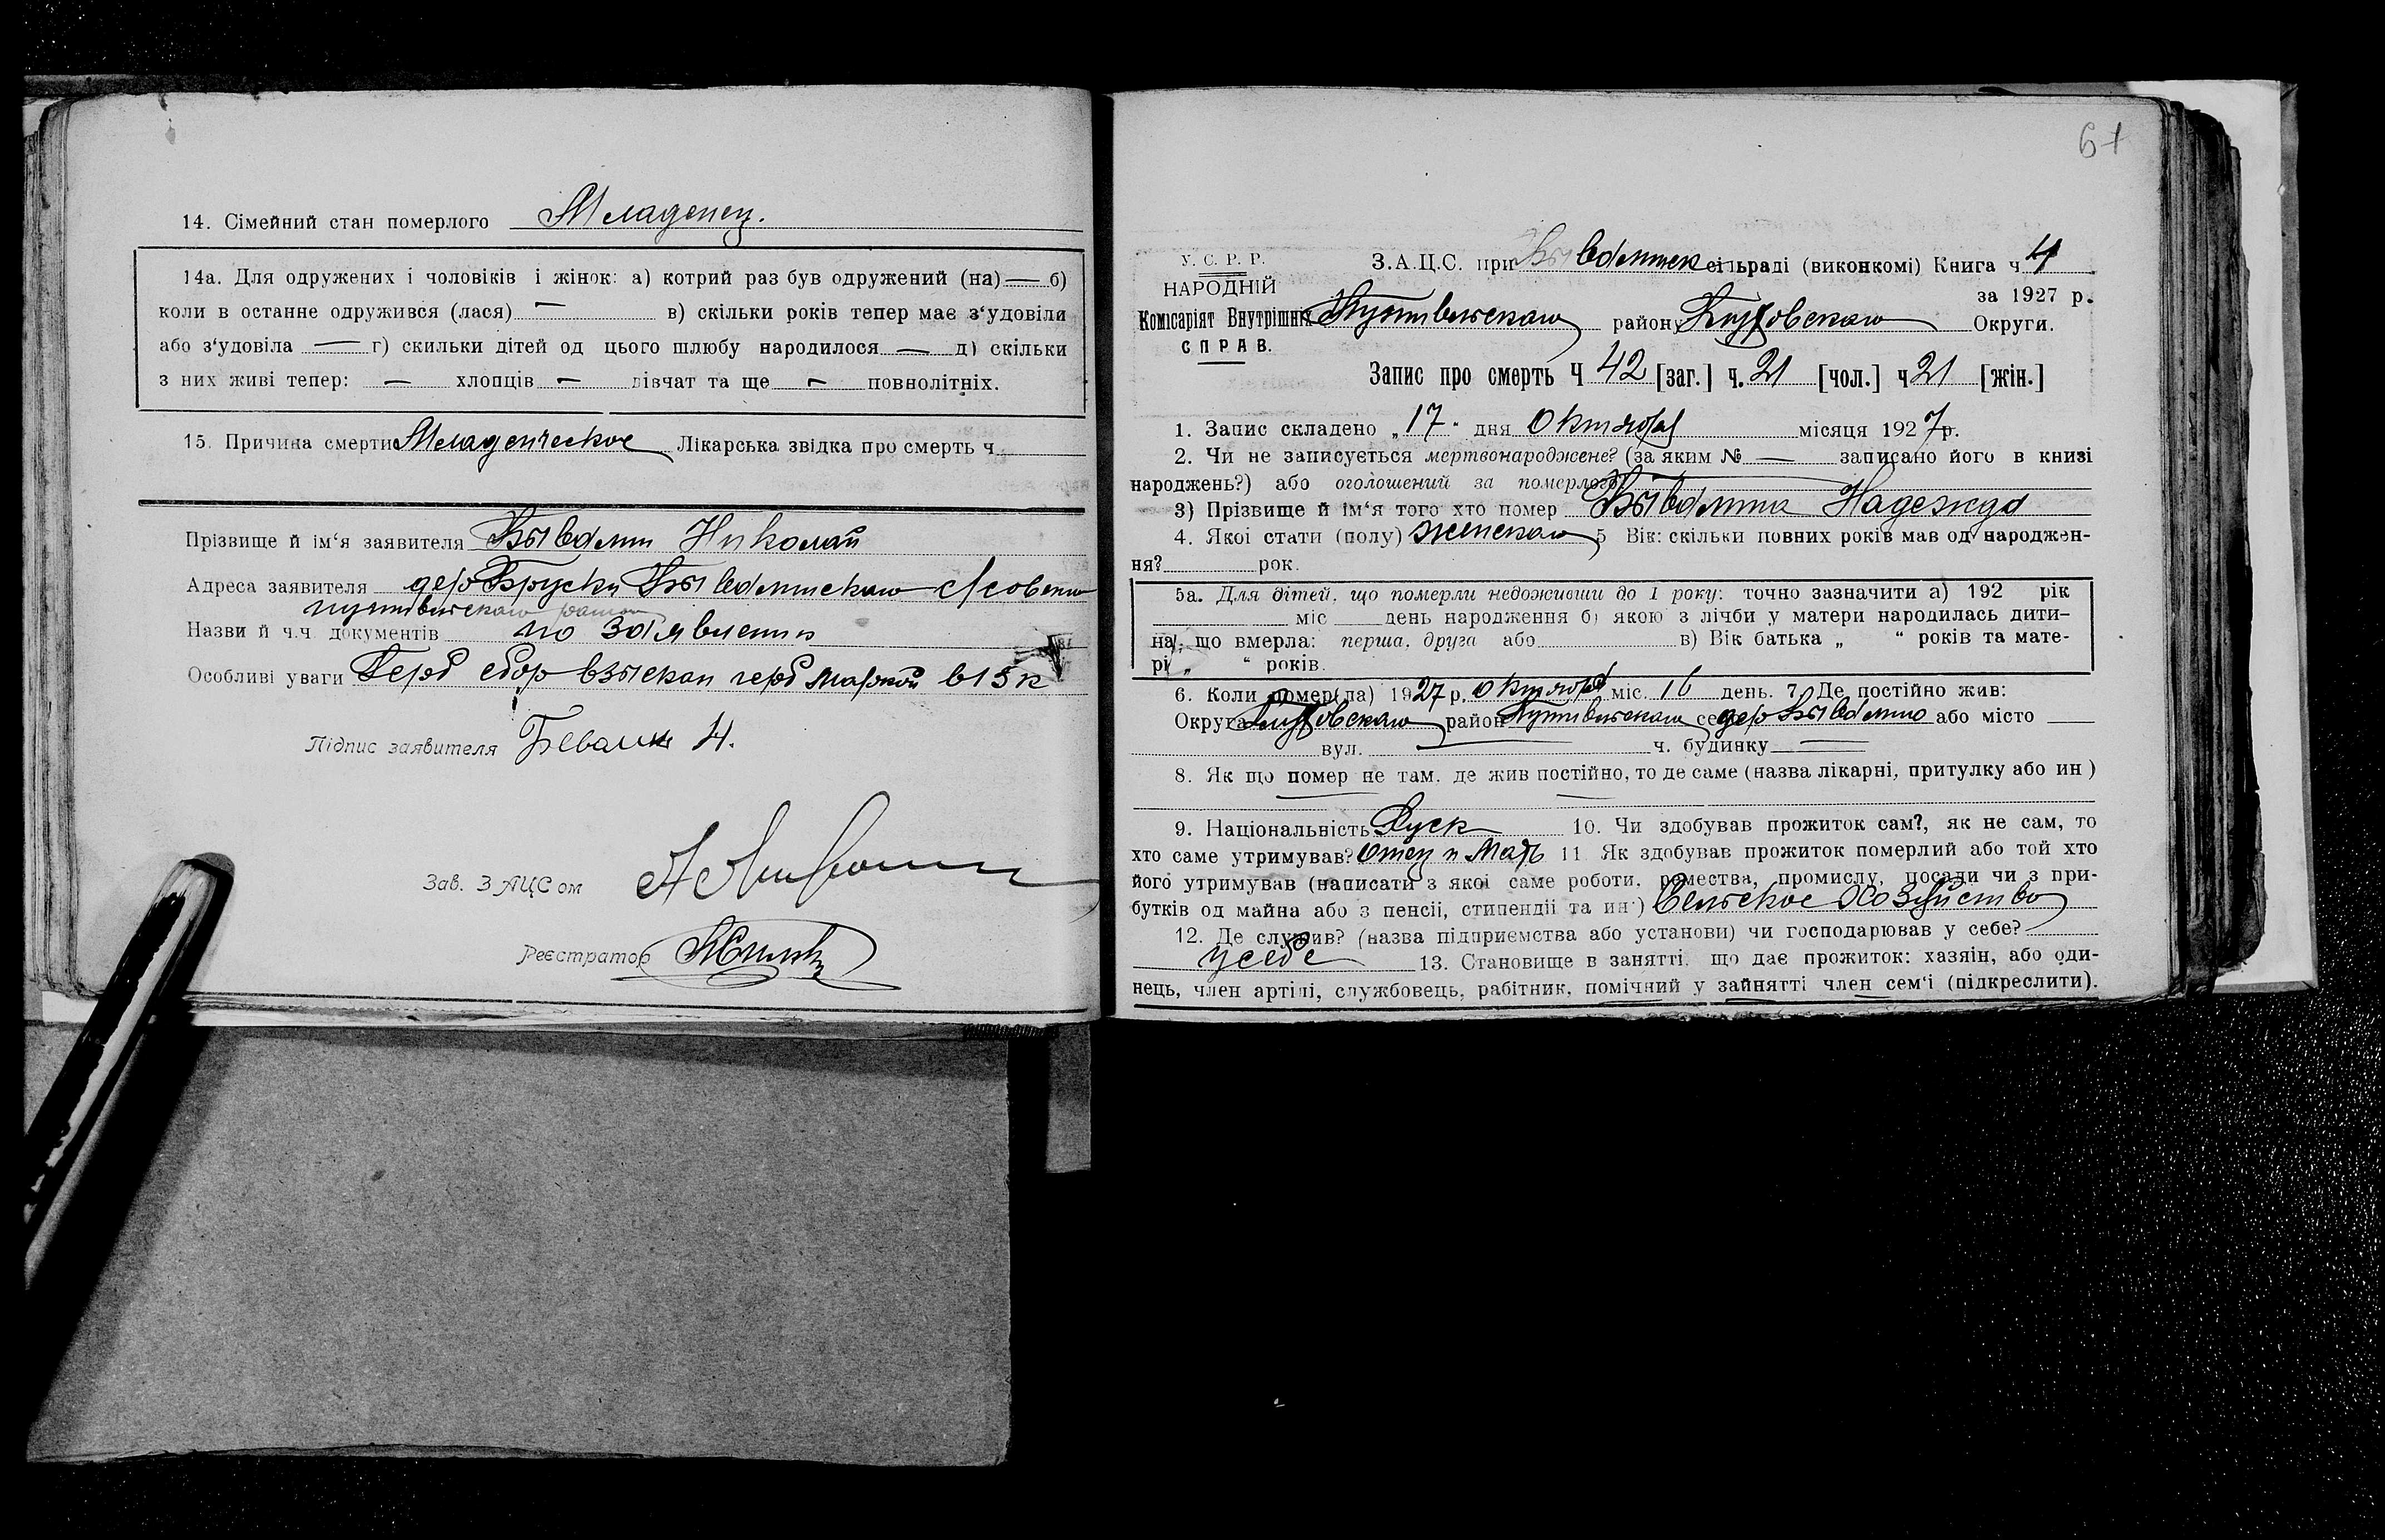 14. Сімейний стан померлого Младенец.
14а. Для одружених і чоловіків і жінок: а) котрий раз був одружений (на) — б)
коли в останне одружився (лася) — в) скільки років тепер має з'удовіли
або з'удовіла — г) скильки дітей од цього шлюбу народилося — д) скільки
з них живі тепер: — хлопців — дівчат та ще — повнолітніх.
15. Причина смерти Младенческое Лікарська звідка про смерть ч.
Прізвище й ім'я заявителя Николай
Адреса заявителя дер Бруски с/совета
путивльскаго района
Назви й ч.ч документів по заявлению
Особливі уваги Герб сбор взыскан герб маркой в 15 к
Підпис заявителя Н.
Зав. ЗАЦСом
Реєстратор
61
У. С. Р. Р.
НАРОДНІЙ
Комісаріят Внутрішніх
СПРАВ.
З.А.Ц.С. при сільраді (виконкомі) Книга ч. 4
за 1927 р.
Путивльскаго району Глуховскаго Округи.
Запис про смерть Ч 42 [заг.] ч. 21 [чол.] ч 21 [жін.]
1. Запис складено „17. дня Октября місяця 1927р.
2. Чи не записується мертвонароджене? (за яким № — записано його в книзі
народжень?) або оголошений за померлого?
3) Прізвище й ім'я того хто помер Надежда
4. Якоі стати (полу) женскаго 5 Вік: скільки повних років мав од народжен-
ня? рок.
5а. Для дітей, що померли недоживши до 1 року: точно зазначити а) 192 рік
міс день народження б) якою з лічби у матери народилась дити-
на, що вмерла: перша, друга або в) Вік батька „ “ років та мате-
рі „ “ років.
6. Коли помер(ла) 1927 р. Октября міс. 16 день. 7. Де постійно жив:
Округа Глуховскаго район Путивльскаго село дер або місто —
вул. — ч. будинку —
8. Як що помер не там, де жив постійно, то де саме (назва лікарні, притулку або ин)
9. Національність Руск 10. Чи здобував прожиток сам?, як не сам, то
хто саме утримував? Отец и Мать 11 Як здобував прожиток померлий або той хто
його утримував (написати з якої саме роботи, ремества, промислу, посади чи з при-
бутків од майна або з пенсіі, стипендіі та ин) Сельское Хозяйство
12. Де служив? (назва підприємства або установи) чи господарював у себе?
у себе 13. Становище в занятті, що дає прожиток: хазяін, або оди-
нець, член артілі, службовець, рабітник, помічний у зайнятті член сем'і (підкреслити).